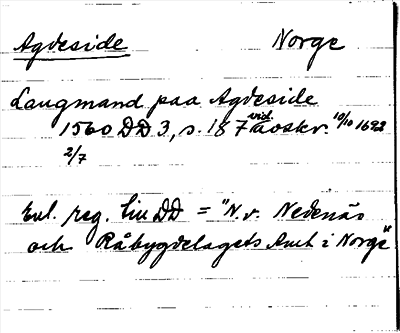 Agdeside Norge
Laugmand paa Agdeside
1560 DD 3, s. 187 vid. avskr. 10/10 1622
2/7
Enl. reg. till DD = "N. v. Nedenäs
och Råbygdelagets Amt i Norge"